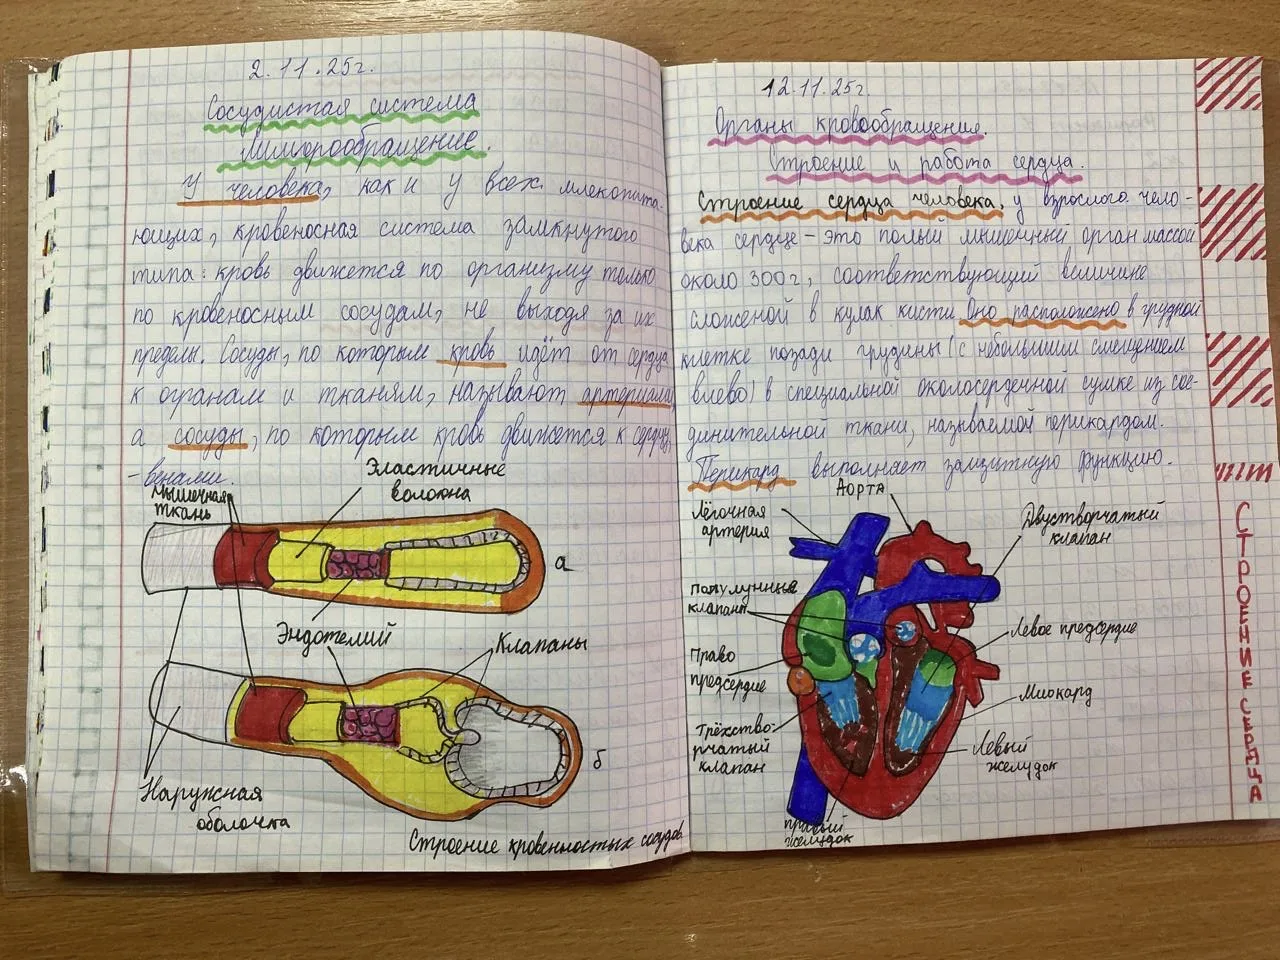 2.11.25г.
Сосудистая система
Лимфообращение.
У человека, как и у всех млекопита-
ющих, кровеносная система замкнутого
типа: кровь движется по организму только
по кровеносным сосудам, не выходя за их
пределы. Сосуды, по которым кровь идёт от сердца
к огранам и тканям, называют артериями,
а сосуды, по которым кровь движется к сердцу,
- венами.
Мышечная
ткань
Эластичные
волокна
а
Эндотелий
Клапаны
б
Наружная
оболочка
Строение кровеностых сосудов
12.11.25г.
Органы кровообращения
Строение и работа сердца.
Строение сердца человека, у взрослого чело-
века сердце - это полый мышечный орган массой
около 300г, соответствующий величине
сложеной в кулак кисти. Оно расположено в грудной
клетке позади грудины (с небольшим смещением
влево) в специальной околосердечной сумке из сое-
динительной ткани, называемой перикардом.
Перикард выполняет защитную функцию.
Аорта
Лёгочная
артерия
Двустворчатый
клапан
полулунные
клапаны
Левое предсердие
Право
предсердие
Миокард
Трёхство-
рчатый
клапан
Левый
желудок
правый
желудок
СТРОЕНИЕ СЕРДЦА